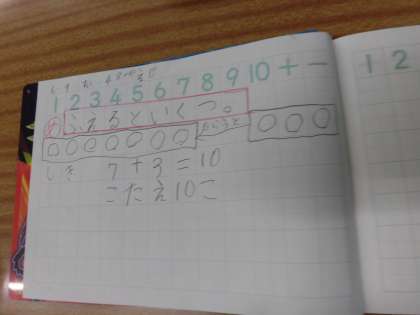 1 2 3 4 5 6 7 8 9 10 + -
1 2
め ふえるといくつ。
しき 7+3=10
こたえ10こ